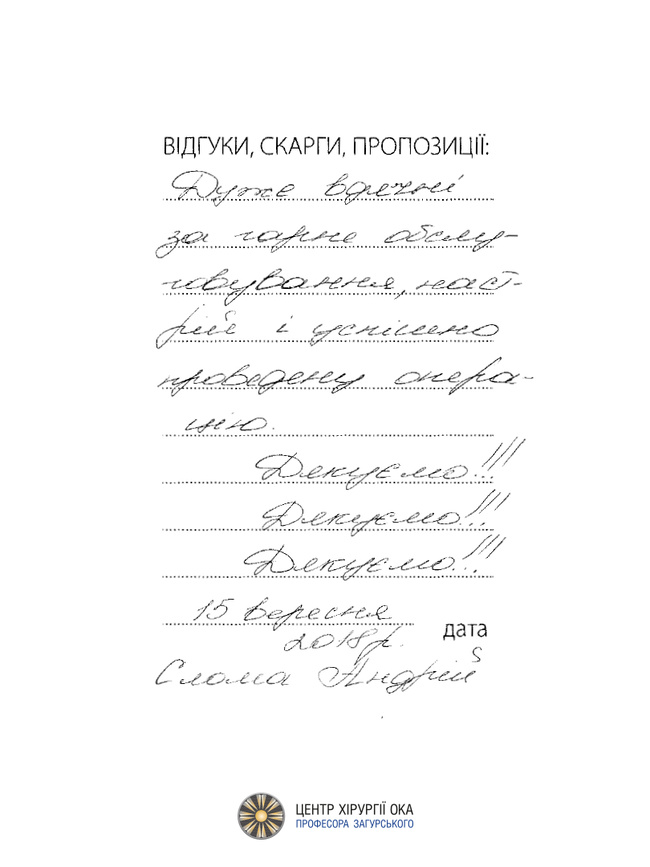 ВІДГУКИ, СКАРГИ, ПРОПОЗИЦІЇ:
Дуже вдячні
за гарне обслу-
говування, наст-
рій і успішно
проведену опера-
цію.
Дякуємо!!!
Дякуємо!!!
Дякуємо!!!
15 вересня
дата
2018 р.
Слома Андрій
ЦЕНТР ХІРУРГІЇ ОКА
ПРОФЕСОРА ЗАГУРСЬКОГО